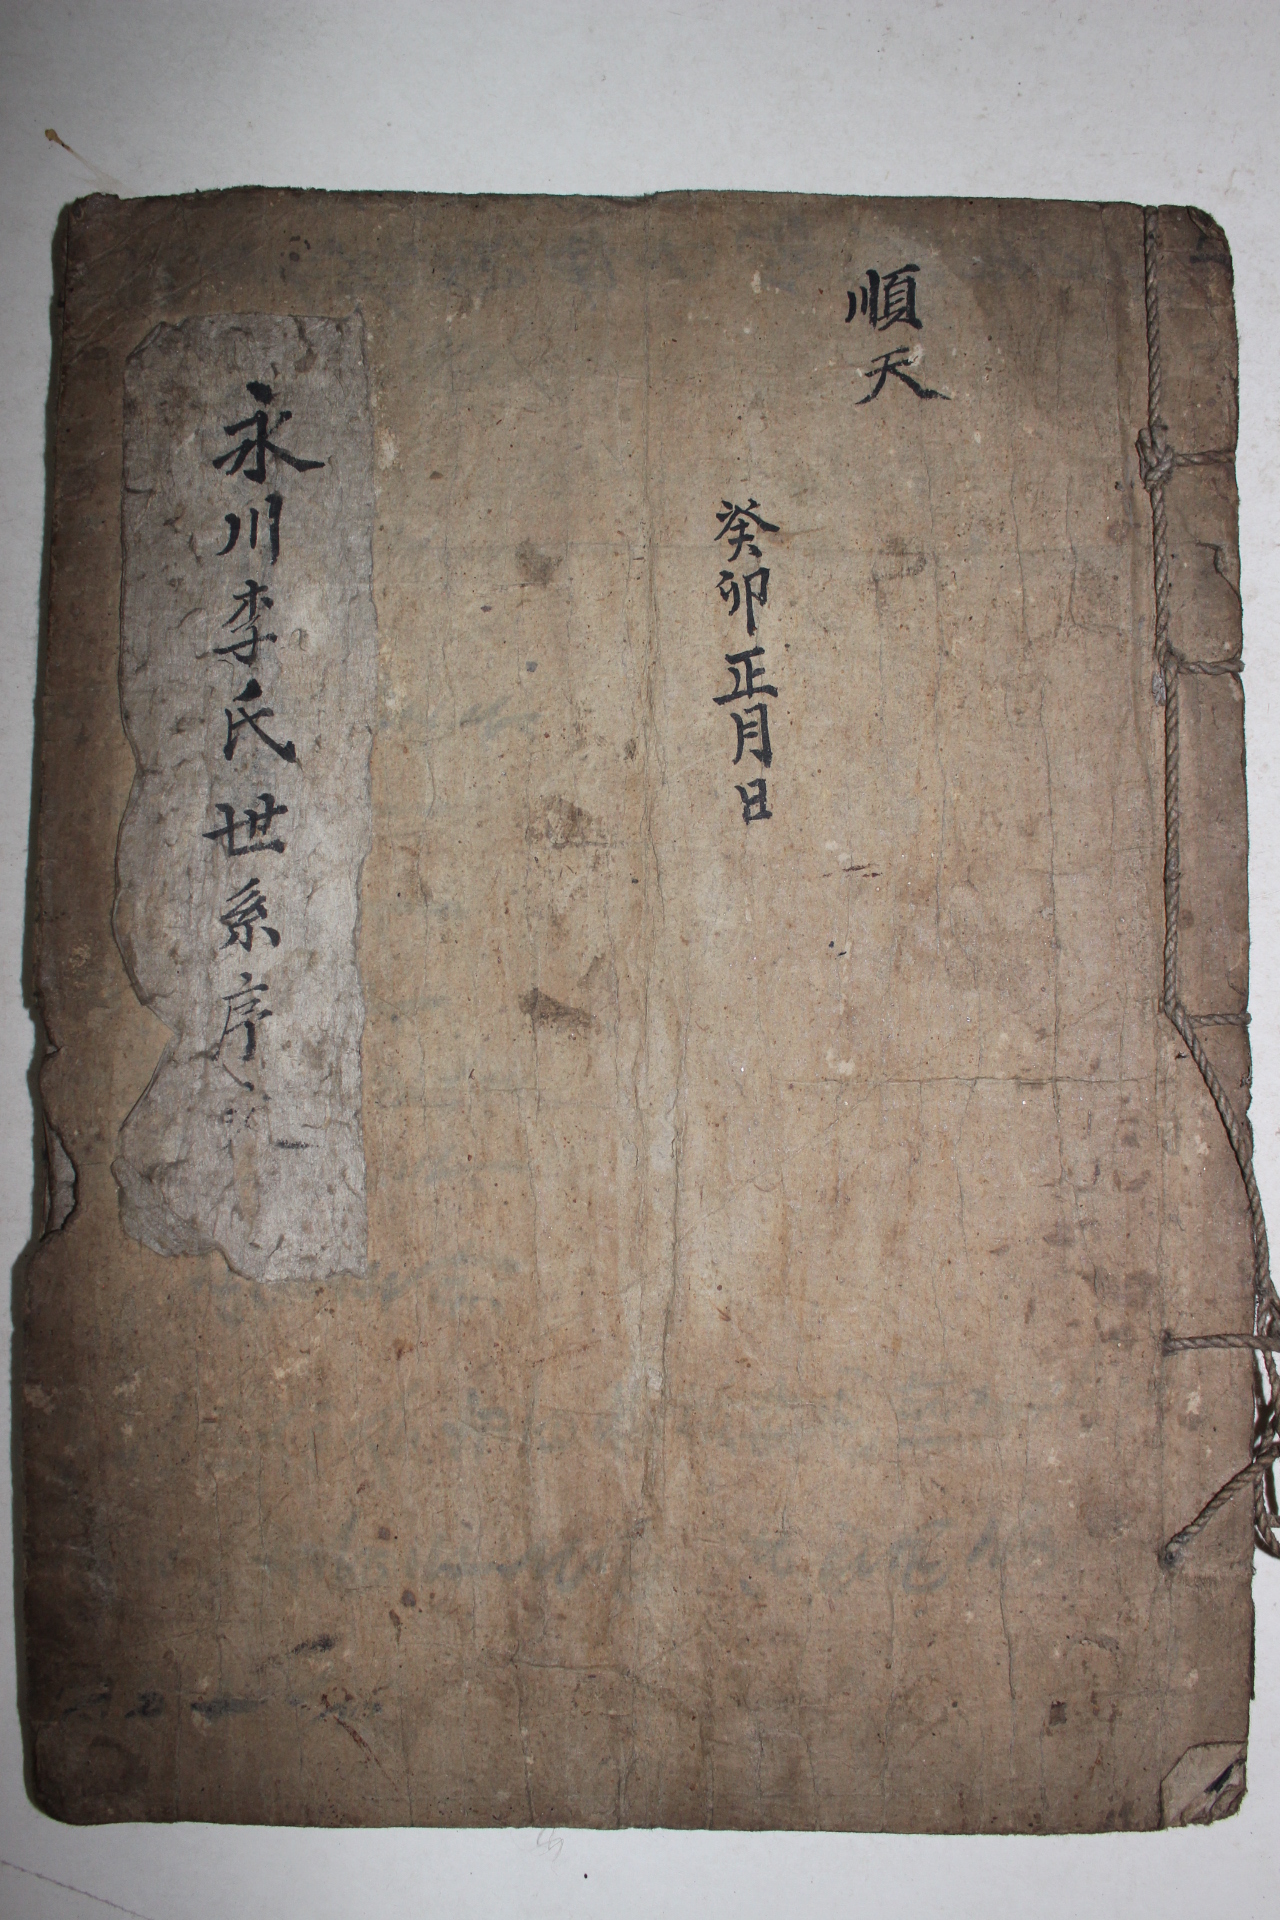 順天
癸卯正月日
永川李氏世系序